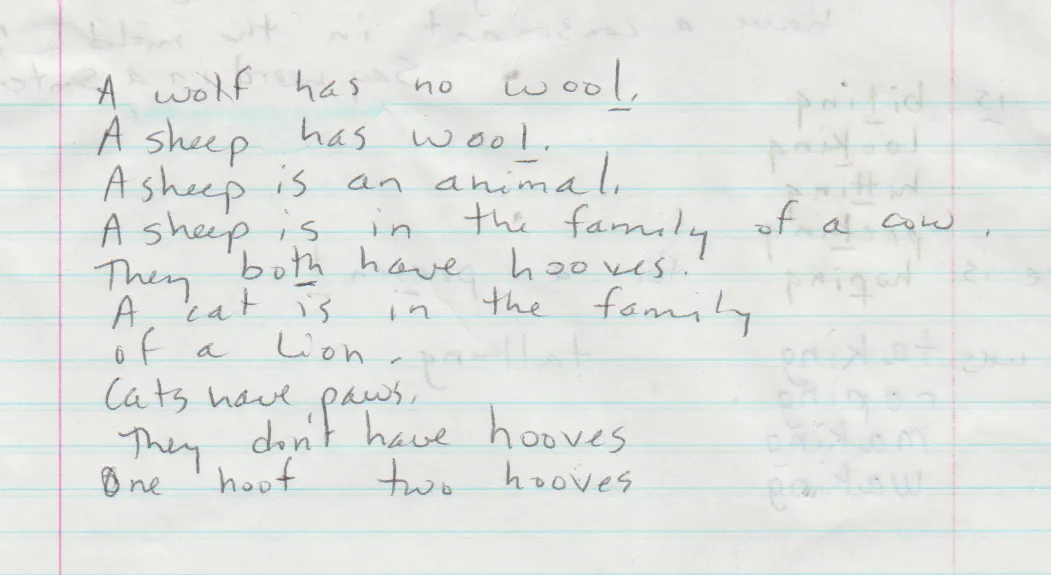 A wolf has no wool.
A sheep has wool.
A sheep is an animal.
A sheep is in the family of a cow.
They both have hooves.
A cat is in the family
of a lion.
Cats have paws.
They don't have hooves
One hoof two hooves